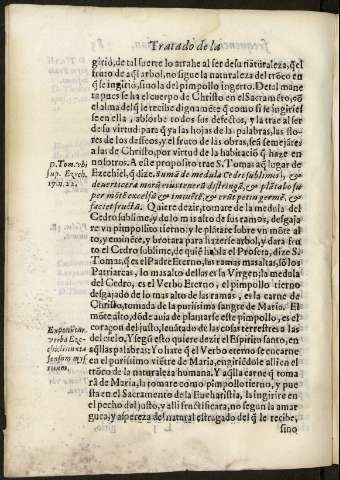 Tratado de la
girió, de tal suerte lo atrahe al ser de su naturaleza, q̃ el
fruto de aq̃l arbol, no sigue la naturaleza del trõco en
q̃ se ingirio, sino la del pimpollo ingerto. De tal mane
ra pues se ha el cuerpo de Christo en el Sacramẽto, cõ
el alma del q̃ le recibe dignamẽte q̃ como si se ingiriel
se en ella, absorbe todos sus defectos, y la trae al ser
de su virtud para q̃ ya las hojas de las palabras, las flo-
res de los desseos, y el fruto de las obras, seã semejãtes
a las de Christo, por virtud de la habitaciõ q̃ haze en
nosotros. A este proposito trae S. Tomas aq̃l lugar de
D. Tom. vbi
sup. Ezech.
17. n. 22.
Ezechiel, q̃ dize. Sumã de medula Cedri sublimis,
& de vertice ramorũ eius tenerũ distringã, & plãtabo su
per mõtẽ excelsũ & eminẽtẽ, & erũpet in germẽ, &
faciet fructũ. Quiere dezir, tomare de la medula del
Cedro sublime, y de lo mis alto de sus ramos, desgaja-
re vn pimpollito tierno, y le plãtare sobre vn mõte al
to, y eminẽte, y brotara para hazerse arbol, y dara fru
to el Cedro sublime, de quiẽ habla el Profeta, dize S.
Tomas, q̃ es el Padre Eterno, las ramas mas altas, sõ los
Patriarcas, lo mas alto dellas es la Virgen; la medula
del Cedro, es el Verbo Eterno, el pimpollo tierno
desgajado de lo mas alto de las ramos, es la carne de
Christo, tomada de la purissima sangre de Maria. El
mõte alto, dõde auia de plantarse este pimpollo, es el
Exponũtur
verba Eze-
chielis iuxta
sensum mys
ticum.
coraçon del justo, leuãtado de las cosas terrestres a las
del cielo. Y segũ esto quiere dezir el Espiritu santo, en
aq̃llas palabras: Yo hare q̃ el Verbo eterno se encarne
en el purissimo viẽtre de Maria, engiriẽdole alli en el
trõco de la naturaleza humana. Y aq̃lla carne q̃ toma
rà de Maria, la tomare como pimpollo tierno, y pue
sta en el Sacramento de la Eucharistia, la ingirire en
el pecho del justo, y alli fructificara, no segun la amar
gura, y aspereza del natural estragado del q̃ le recibe,
sino